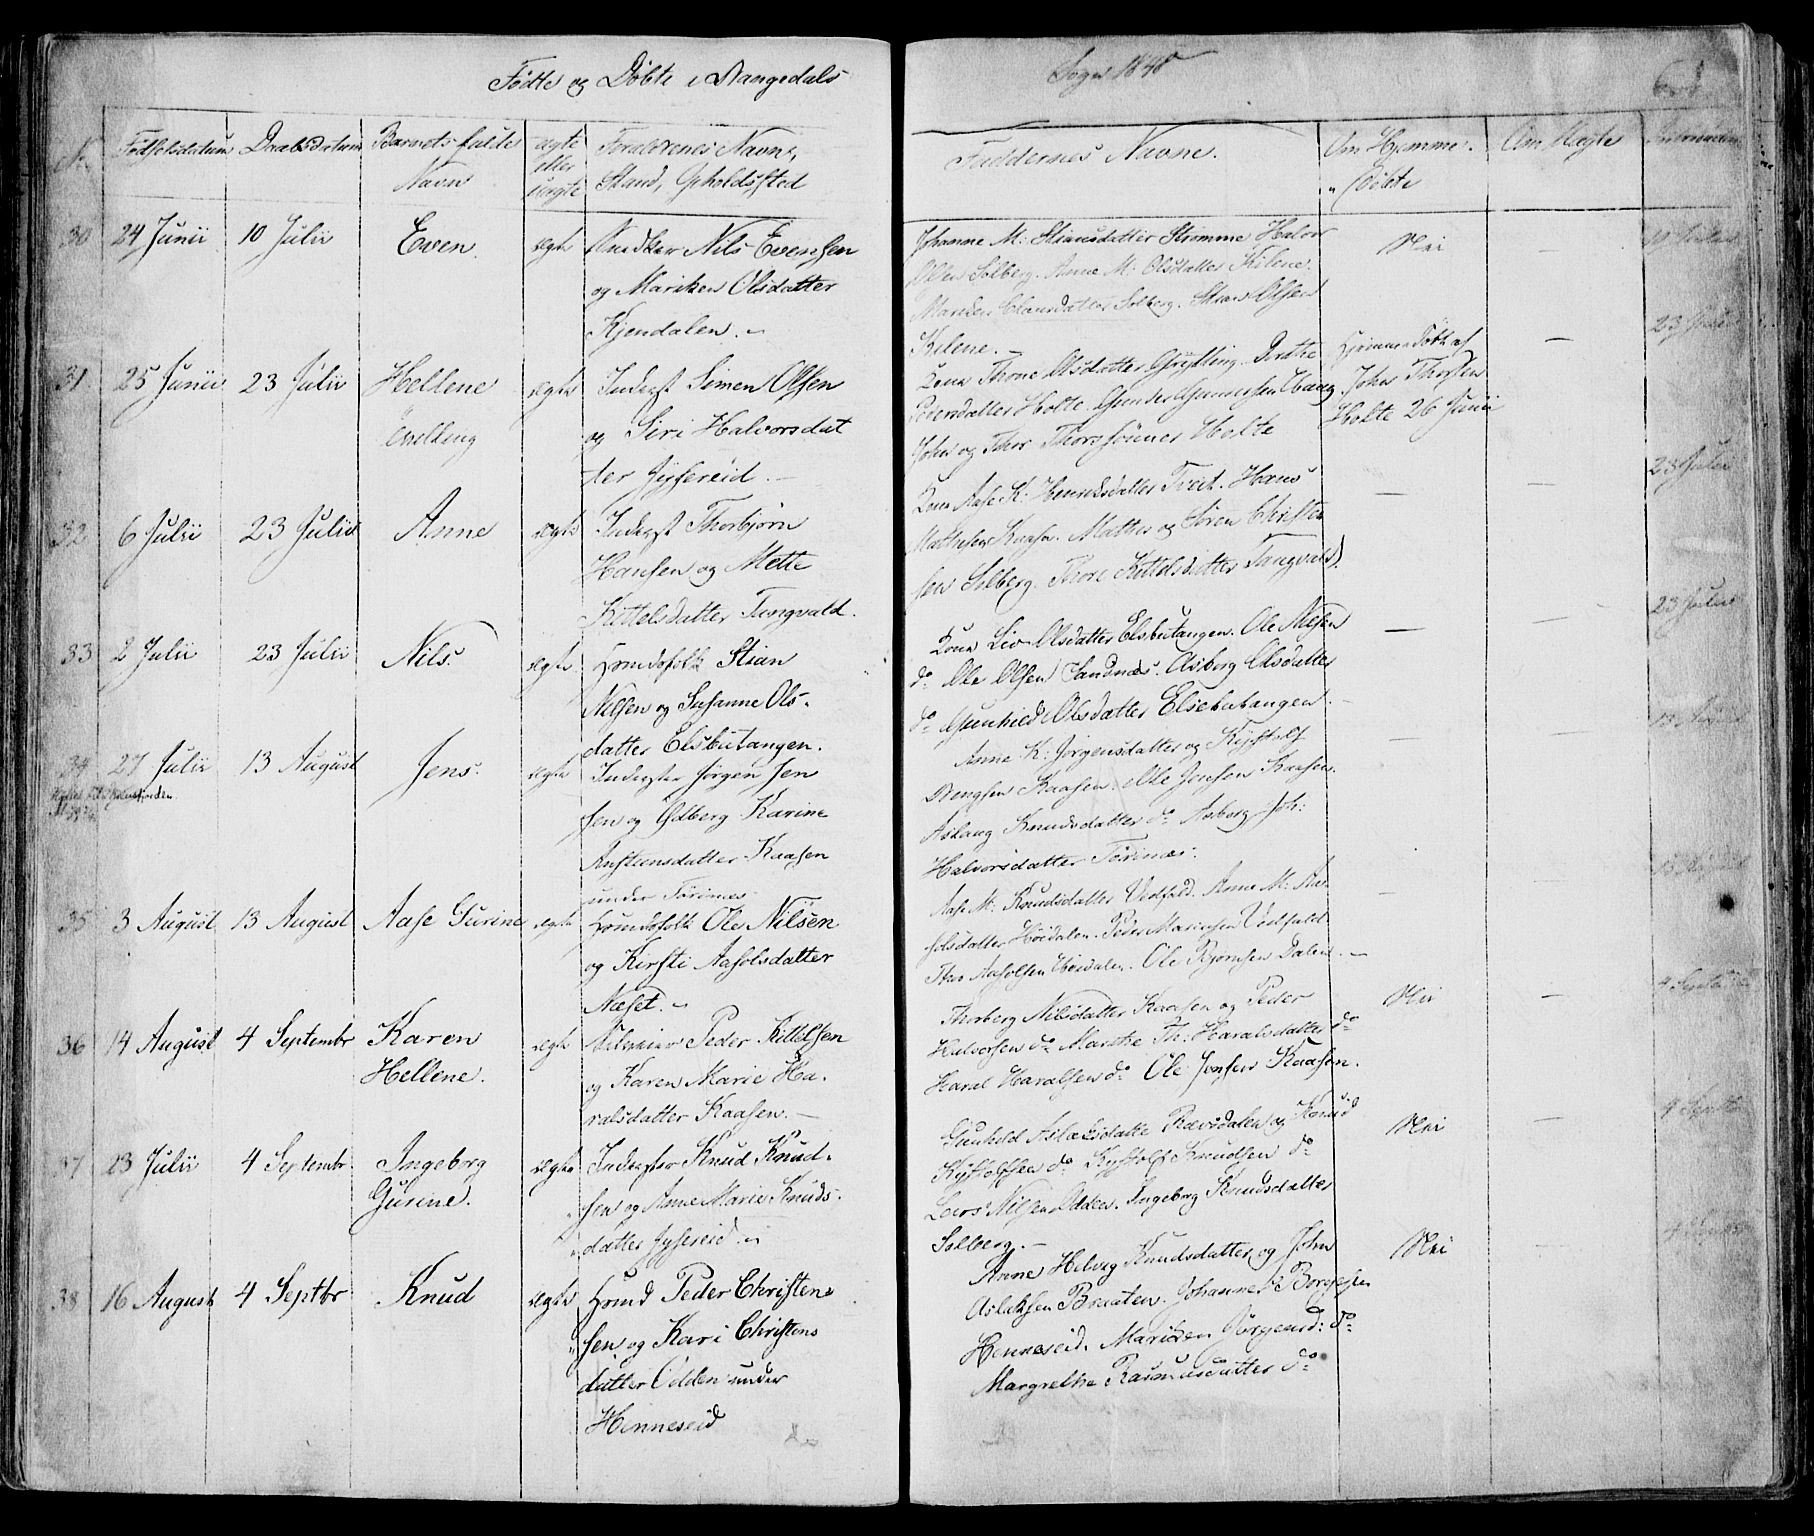 Födte og Döbte i Drangedals Sogn 1840
61
No Födselsdatum Daabsdatum Barnets fulde Navn ægte eller uægte Forældrenes Navne, Stand, Opholdssted
Faddernes Navne. Om Hjemme-Döbte
30 24 Junii 10 Julii Even. ægte Nils Evensen
og Mariken Olsdatter
Kjendalen.
Johanne M: Stiansdatter Strömme Halvor
Olsen Solberg. Anne M: Olsdatter Kilene.
Mariken Clausdatter Solberg. Stian Olsen
Kilene.
Nei
31 25 Junii 23 Julii Hellene ægte Inderst Simen Olsen
Tvilling og Siri Halvorsdat
ter Gjysereid.
Kone Thone Olsdatter Dorthe
Pedersdatter Holte. Gunder Gundersen Haug.
John og Thor Thorssönner Holte
Hjemmedöbt af
John Thorsen
Holte 26 Junii
23 Julii
32 6 Julii 23 Julii Anne ægte Inderst Thorbjörn
Hansen og Mette
Kittelsdatter Tangvald.
Kone Aase K. Henriksdatter Tveit. Hans
Mathisen Kaasa. Mathis og Sören Christen
sen Solberg. Thore Kittelsdatter Tangvald.
23 Julii
33 2 Julii 23 Julii Nils. ægte Huusfolk Stian
Nilsen og Susanne Ols-
datter Elsbutangen.
Kone Liv Olsdatter Elsbutangen. Ole Nilsen
do Ole Olsen Sandnæs. Asborg Olsdatter
do Gunhild Olsdatter Elsebutangen.
23 Julii
34 27 Julii 13 August Jens. ægte Inderster Jörgen Jen
sen og Edberg Karine
Austensdatter Kaasen
under Törisnæs
Anne K: Jörgensdatter og Kjystolf
Bengsen Kaasen. Ole Jensen Kaasen.
Aslaug Knudsdatter do Asborg Joh:
Halvorsdatter Törisnæs.
13 August
35 3 August 13 August Aase Gurine ægte Huusfolk Ole Nilsen
og Kirsti Aasolsdatter
Næset.
Aase M: Knudsdatter Vedfald. Anne M: Aa-
solsdatter Höidalen. Peder Vedfald
Thor Aasolsen Höidalen. Ole Bjørnsen Dalen.
13 August
36 14 August 4 Septembr Karen ægte Peder Kittelsen
Hellene. og Karen Marie Ha-
ralsdatter Kaasen.
Thorberg Nilsdatter Kaasen og Peder
Halvorsen do Marthe Th: Haralsdatter do
Haral Haralsen do Ole Jensen Kaasen.
Nei
37 13 Julii 4 Septembr. Ingeborg ægte Inderster Knud Knud-
Gurine. sen og Anne Marie Knuds-
datter Gjysereid.
Gunhild Aslaksdatter Rævsdalen og Knud
Kjystolfsen do Kjystolf Knudsen do
Lars Nilsen Odden. Ingeborg Knudsdatter
Solberg.
Nei
4 Septbr
38 16 August 4 Septbr Knud ægte Huusmd Peder Christen-
sen og Kari Christens
datter Odden under
Henneseid
Anne Helvig Knudsdatter og John
Aslaksen Braaten. Johannes Borgesen
Henneseid. Mariken Jörgensd: do
Margrethe Rasmusdatter do
Nei